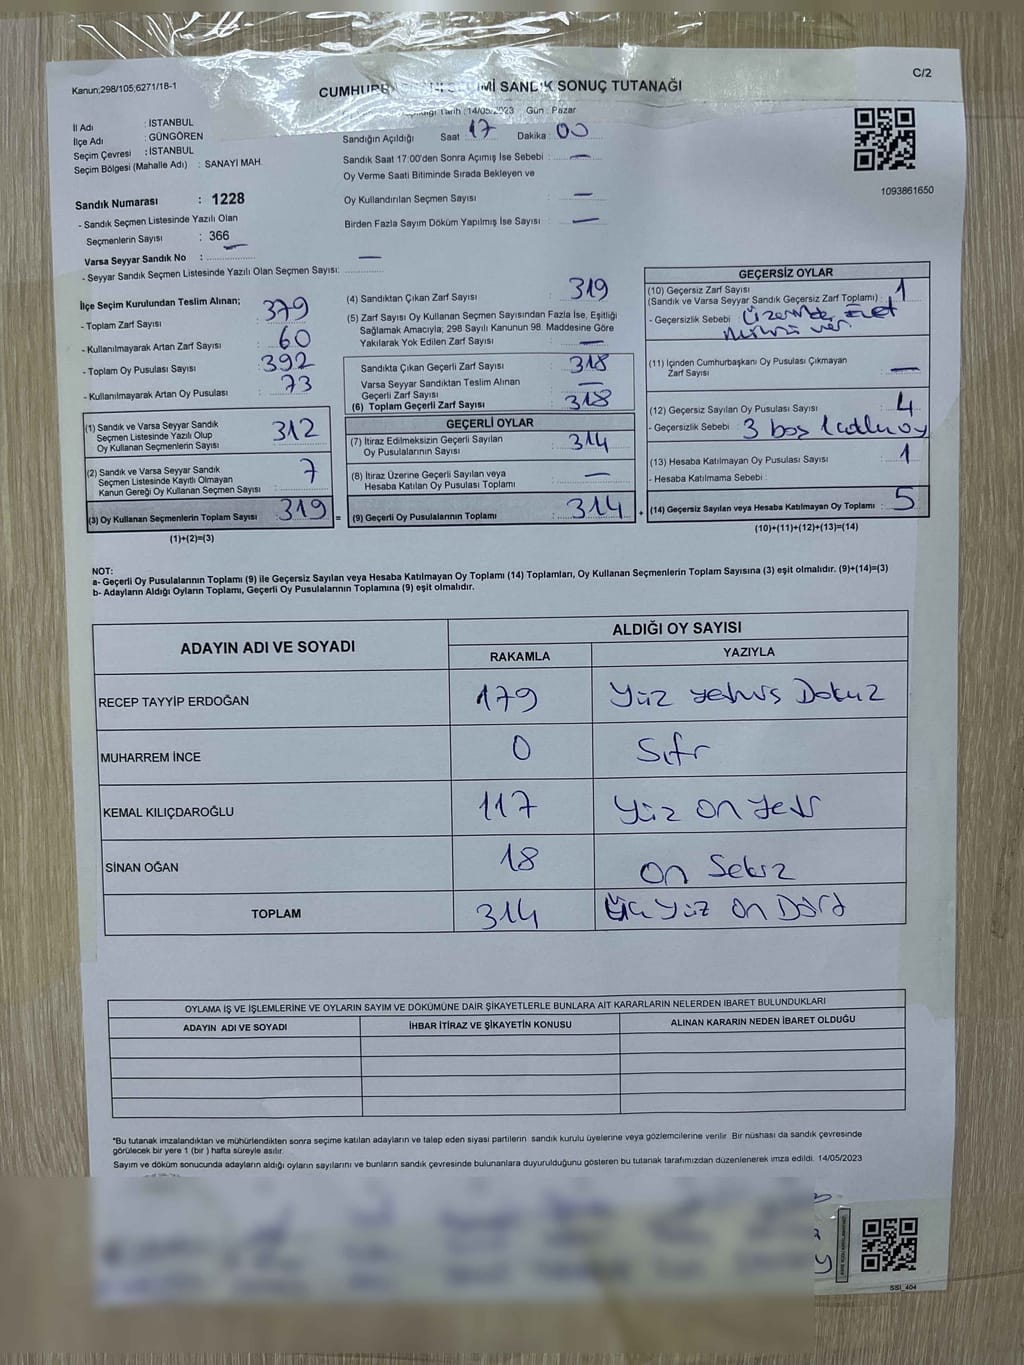 Kanun;298/105;6271/18-1
C/2
SANDIK SONUÇ TUTANAĞI
14/05/2023 Gün : Pazar
İl Adı : İSTANBUL
İlçe Adı : GÜNGÖREN
Seçim Çevresi : İSTANBUL
Seçim Bölgesi (Mahalle Adı) : SANAYİ MAH.
Sandık Numarası : 1228
- Sandık Seçmen Listesinde Yazılı Olan
Seçmenlerin Sayısı : 366
Varsa Seyyar Sandık No : —
- Seyyar Sandık Seçmen Listesinde Yazılı Olan Seçmen Sayısı:
Sandığın Açıldığı Saat 17 Dakika : 00
Sandık Saat 17:00'den Sonra Açımış İse Sebebi : —
Oy Verme Saati Bitiminde Sırada Bekleyen ve
Oy Kullandırılan Seçmen Sayısı : —
Birden Fazla Sayım Döküm Yapılmış İse Sayısı : —
1093861650
İlçe Seçim Kurulundan Teslim Alınan;
- Toplam Zarf Sayısı : 379
- Kullanılmayarak Artan Zarf Sayısı : 60
- Toplam Oy Pusulası Sayısı : 392
- Kullanılmayarak Artan Oy Pusulası : 73
(1) Sandık ve Varsa Seyyar Sandık
Seçmen Listesinde Yazılı Olup
Oy Kullanan Seçmenlerin Sayısı : 312
(2) Sandık ve Varsa Seyyar Sandık
Seçmen Listesinde Kayıtlı Olmayan
Kanun Gereği Oy Kullanan Seçmen Sayısı : 7
(3) Oy Kullanan Seçmenlerin Toplam Sayısı : 319 =
(1)+(2)=(3)
(4) Sandıktan Çıkan Zarf Sayısı : 319
(5) Zarf Sayısı Oy Kullanan Seçmen Sayısından Fazla İse, Eşitliği
Sağlamak Amacıyla; 298 Sayılı Kanunun 98. Maddesine Göre
Yakılarak Yok Edilen Zarf Sayısı : —
Sandıkta Çıkan Geçerli Zarf Sayısı : 318
Varsa Seyyar Sandıktan Teslim Alınan
Geçerli Zarf Sayısı : —
(6) Toplam Geçerli Zarf Sayısı : 318
GEÇERLİ OYLAR
(7) İtiraz Edilmeksizin Geçerli Sayılan
Oy Pusulalarının Sayısı : 314
(8) İtiraz Üzerine Geçerli Sayılan veya
Hesaba Katılan Oy Pusulası Toplamı : —
(9) Geçerli Oy Pusulalarının Toplamı : 314 +
GEÇERSİZ OYLAR
(10) Geçersiz Zarf Sayısı
(Sandık ve Varsa Seyyar Sandık Geçersiz Zarf Toplamı) : 1
- Geçersizlik Sebebi : Üzerinde Evet
mührü var
(11) İçinden Cumhurbaşkanı Oy Pusulası Çıkmayan
Zarf Sayısı : —
(12) Geçersiz Sayılan Oy Pusulası Sayısı : 4
- Geçersizlik Sebebi : 3 boş 1 oy
(13) Hesaba Katılmayan Oy Pusulası Sayısı : 1
- Hesaba Katılmama Sebebi :
(14) Geçersiz Sayılan veya Hesaba Katılmayan Oy Toplamı : 5
(10)+(11)+(12)+(13)=(14)
NOT:
a- Geçerli Oy Pusulalarının Toplamı (9) ile Geçersiz Sayılan veya Hesaba Katılmayan Oy Toplamı (14) Toplamları, Oy Kullanan Seçmenlerin Toplam Sayısına (3) eşit olmalıdır. (9)+(14)=(3)
b- Adayların Aldığı Oyların Toplamı, Geçerli Oy Pusulalarının Toplamına (9) eşit olmalıdır.
ADAYIN ADI VE SOYADI
ALDIĞI OY SAYISI
RAKAMLA YAZIYLA
RECEP TAYYİP ERDOĞAN 179 Yüz yetmiş Dokuz
MUHARREM İNCE 0 Sıfır
KEMAL KILIÇDAROĞLU 117 Yüz on yedi
SİNAN OĞAN 18 on Sekiz
TOPLAM 314 Üç Yüz on Dört
OYLAMA İŞ VE İŞLEMLERİNE VE OYLARIN SAYIM VE DÖKÜMÜNE DAİR ŞİKAYETLERLE BUNLARA AİT KARARLARIN NELERDEN İBARET BULUNDUKLARI
ADAYIN ADI VE SOYADI İHBAR İTİRAZ VE ŞİKAYETİN KONUSU ALINAN KARARIN NEDEN İBARET OLDUĞU
"Bu tutanak imzalandıktan ve mühürlendikten sonra seçime katılan adayların ve talep eden siyasi partilerin sandık kurulu üyelerine veya gözlemcilerine verilir. Bir nüshası da sandık çevresinde
görülecek bir yere 1 (bir ) hafta süreyle asılır.
Sayım ve döküm sonucunda adayların aldığı oyların sayılarını ve bunların sandık çevresinde bulunanlara duyurulduğunu gösteren bu tutanak tarafımızdan düzenlenerek imza edildi. 14/05/2023
SSI_404